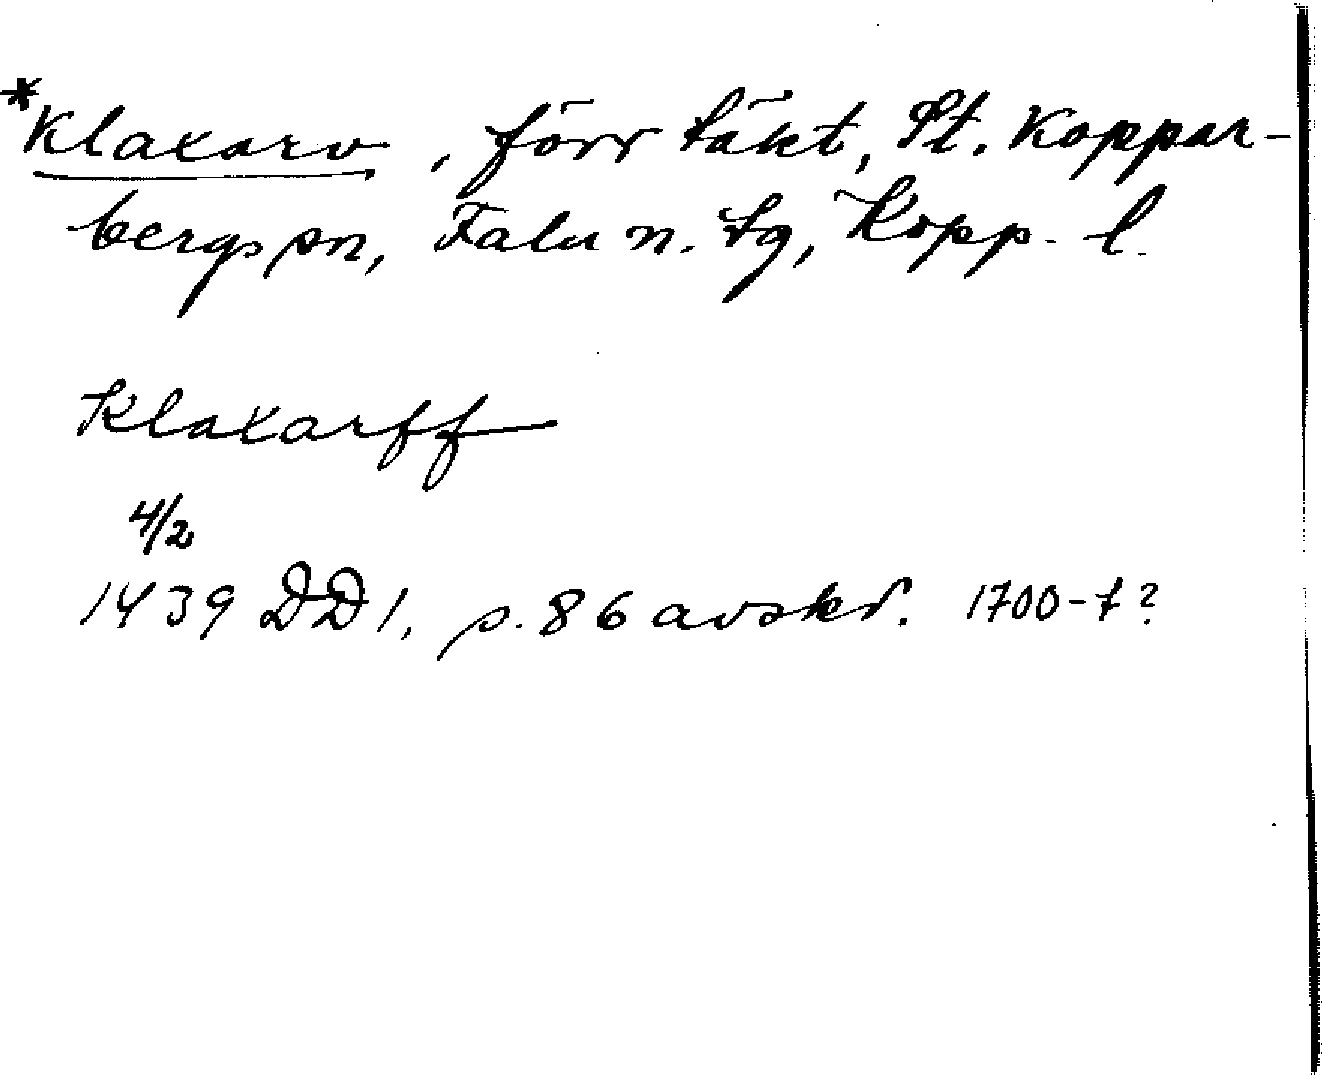 *Klaxarv, förr täkt, St. Koppar-
bergs sn, Falu n. tg, Kopp. l.
Klaxarff
4/2
1439 DD 1, s. 86 avskr. 1700-t?